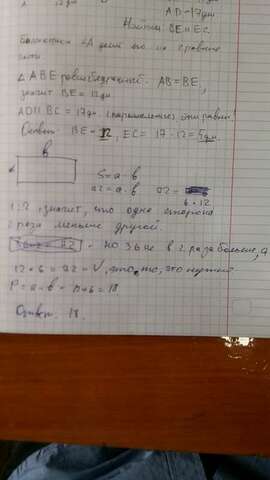 AD = 17 дм
Найти BE и EC.
Биссектриса ∠A делит его на 2 равные
△ABE равнобедренный. AB = BE,
значит BE = 12 дм.
AD || BC = 17 дм. (параллельны) они равны.
Ответ: BE = 12, EC = 17 - 12 = 5 дм.
в
а
S = a · в
72 = a · в 72 =
6 · 12
1:2 значит, что одна сторона
2 раза меньше другой.
- но 36 не в 2 раза больше, а
12 * 6 = 72 = √, это то, что нужно
P = a - в = 12 + 6 = 18
Ответ: 18.